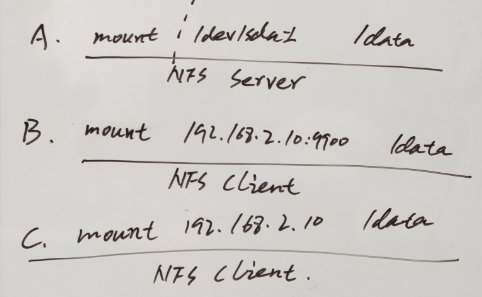 A. mount /dev/sda1 /data
NFS Server
B. mount 192.168.2.10:9900 /data
NFS Client
C. mount 192.168.2.10 /data
NFS Client.